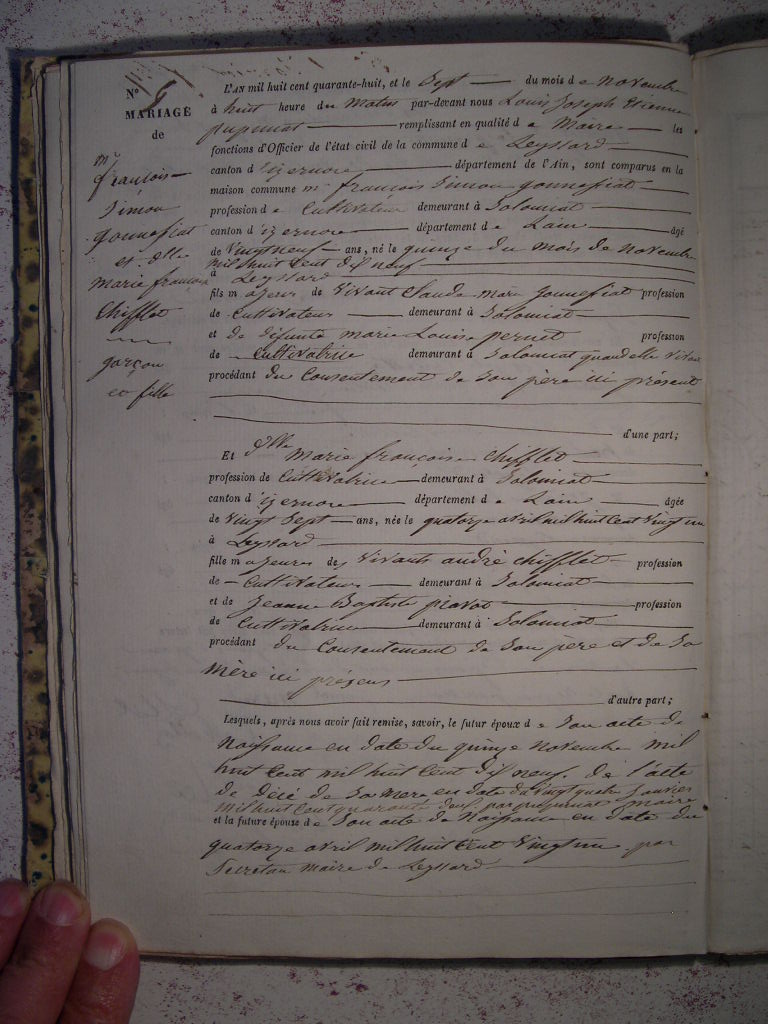 N° 9
MARIAGE
de
mr
francois
Simon
gonnessiat
et Dlle
marie francoise
Chifflet
garçon
et fille
L'AN mil huit cent quarante-huit, et le Sept du mois de Novembre
à huit heure du Matin par-devant nous Louis Joseph Etienne
pupunat remplissant en qualité de Maire les
fonctions d'Officier de l'état civil de la commune de Leyssard
canton d'izernore département de l'Ain, sont comparus en la
maison commune mr francois Simon gonnessiat
profession de Cultivateur demeurant à Solomiat
canton d'izernore département de Lain âgé
de Vingt neuf ans, né le quinze du mois de Novembre
mil huit Cent dix neuf
à Leyssard
fils majeur de Vivant Claude marie gonnessiat profession
de Cultivateur demeurant à Solomiat
et de défunte marie Louise pernet profession
de Cultivatrice demeurant à Solomiat quand elle vivait
procédant du Consentement de Son père ici présent
d'une part;
Et Dlle marie françoise Chifflet
profession de Cultivatrice demeurant à Solomiat
canton d'izernore département de Lain âgée
de Vingt Sept ans, née le quatorze avril mil huit Cent Vingt un
à Leyssard
fille majeure des Vivants andré Chifflet profession
de Cultivateur demeurant à Solomiat
et de Jeanne Baptiste profession
de Cultivatrice demeurant à Solomiat
procédant du Consentement de Son père et de Sa
mère ici présens
d'autre part;
Lesquels, après nous avoir fait remise, savoir, le futur époux de Son acte de
Naissance en date du quinze Novembre mil
huit Cent mil huit Cent dix neuf. de l'acte
de Décé de Sa mere en date du Vingt quatre Janvier
mil huit Cent quarante deux, par pupunat maire
et la future épouse de Son acte de Naissance en date du
quatorze avril mil huit Cent Vingt un par
Secretan maire de Leyssard